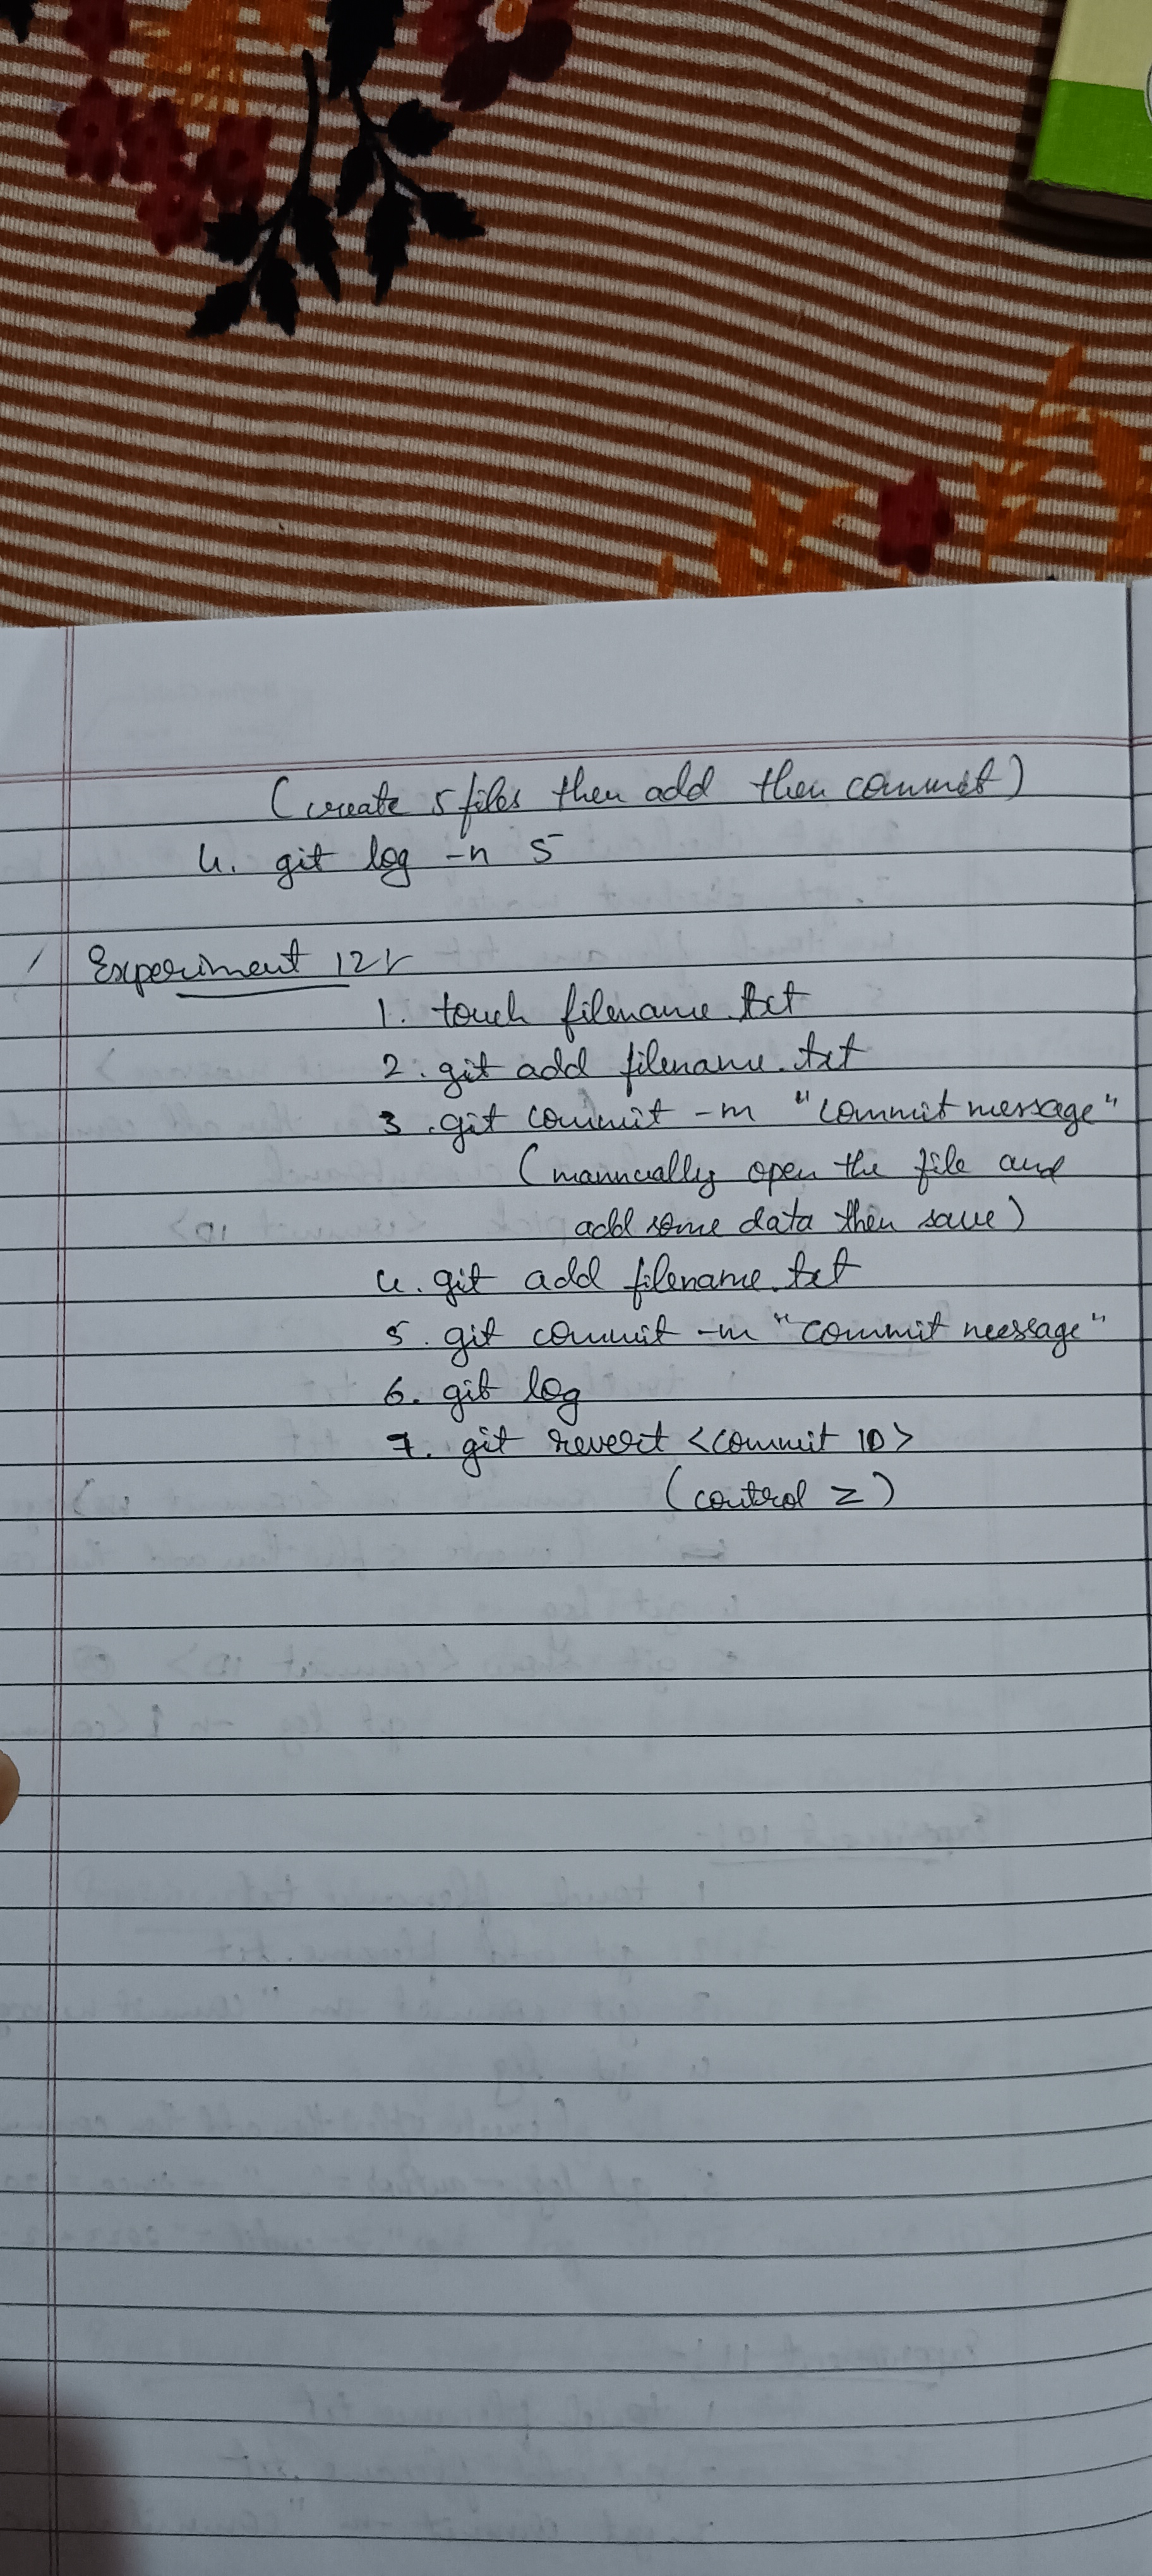 (create 5 files then add then commit)
4. git log -n 5
Experiment 12:-
1. touch filename.txt
2. git add filename.txt
3. git commit -m "commit message"
(mannually open the file and
add some data then save)
4. git add filename.txt
5. git commit -m "commit message"
6. git log
7. git revert <commit ID>
(control z)